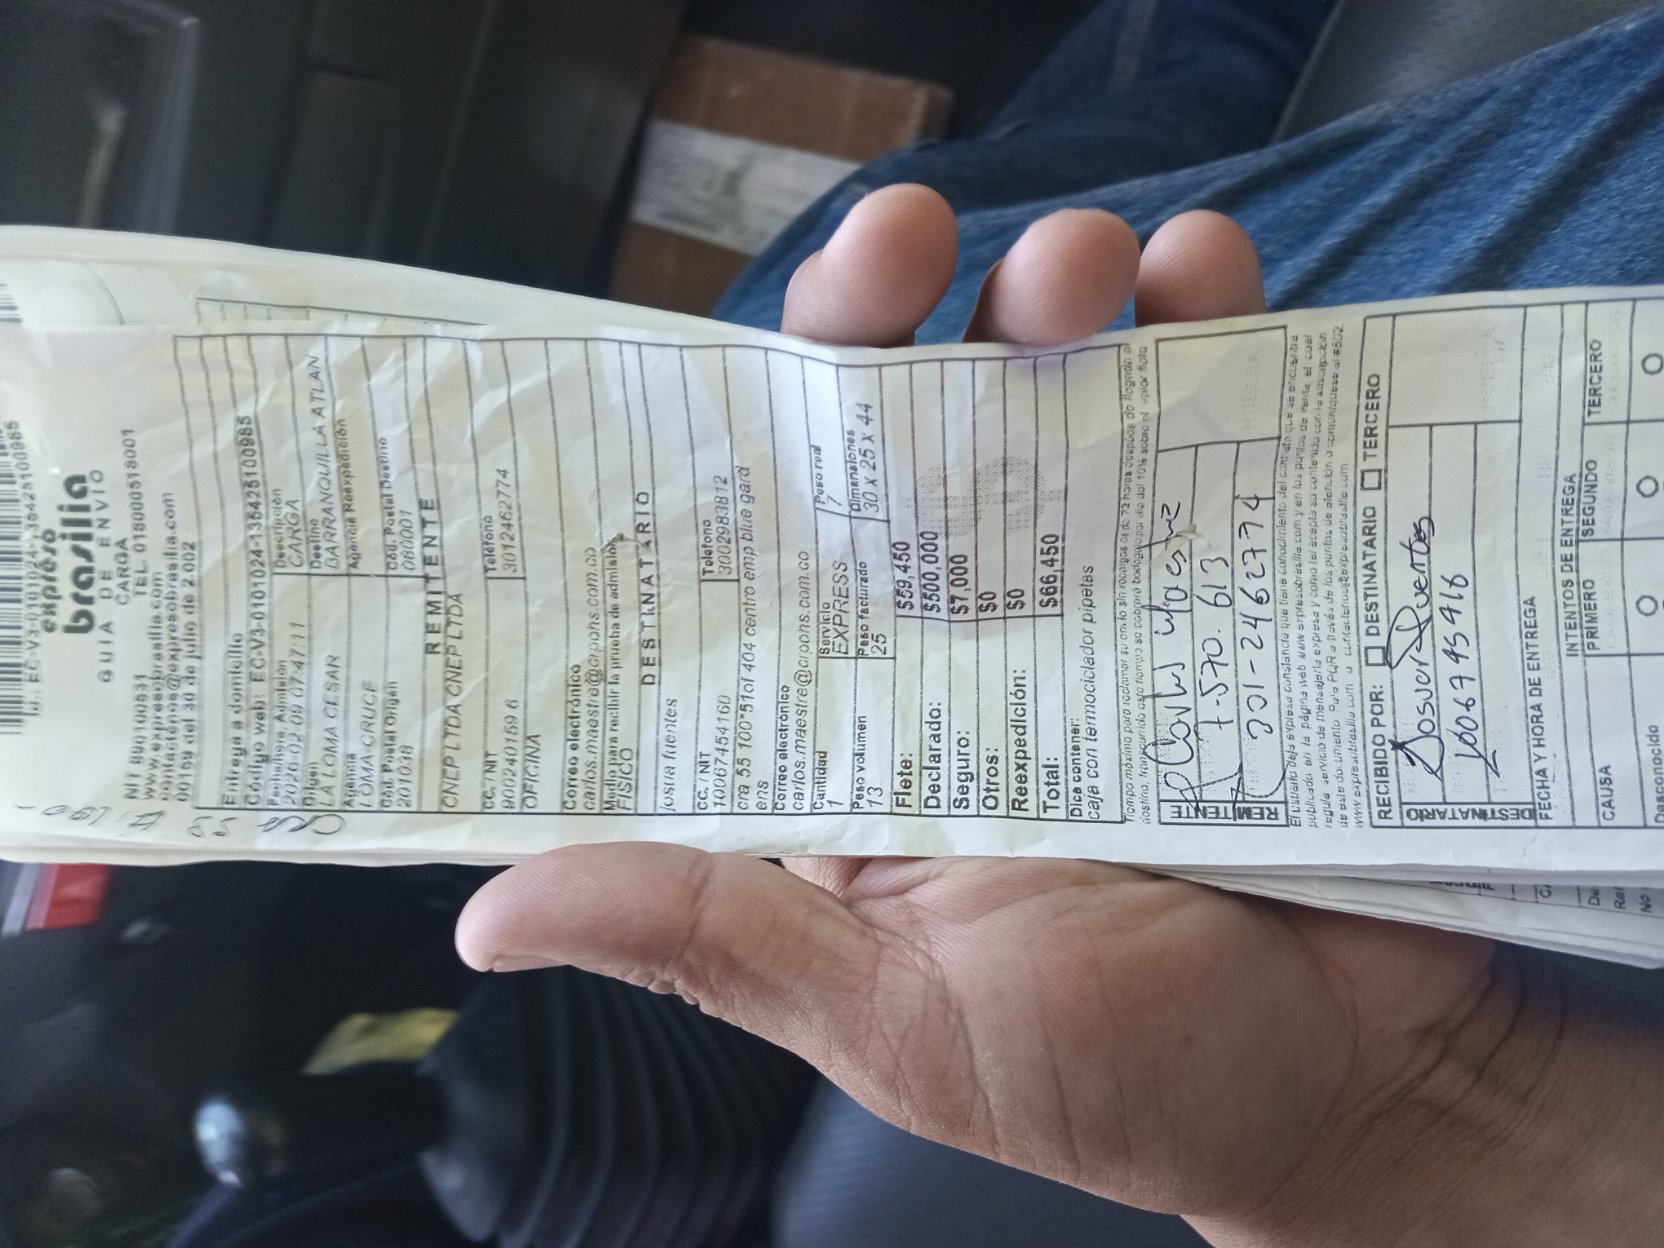 Tel., EC-V3-0101024-135425100985
expreso
brasilia
GUIA DE ENVIO
CARGA
NIT 890100531 TEL. 018000518001
www.expresobrasilia.com
contactenos@expresobrasilia.com
001 del 30 de julio de 2.002
Entrega a domicilio
Código web: EC-V3-0101024-13542510 0985
Fecha/Hora Admisión Descripción
2026-02-09 07:47:11 CARGA
Origen Destino
LA LOMA CESAR BARRANQUILLA ATLAN
Agencia Agencia Reexpedición
LOMA-CRUCE
Cód. Postal Origen Cód. Postal Destino
201038 080001
REMITENTE
CNEP LTDA CNEP LTDA
CC, NIT Teléfono
900240159 6 3012462774
OFICINA
Correo electrónico
carlos.maestre@crpons.com.co
Medio para recibir la prueba de admisión
FISICO
DESTINATARIO
josua fuentes
CC, NIT Teléfono
1006745416 0 3002983812
cra 55 100*51of 404 centro enp blue gard
ens
Correo electrónico
carlos.maestre@crpons.com.co
Cantidad Servicio Peso real
1 EXPRESS 7
Peso volumen Peso facturado Dimensiones
13 25 30 x 25 x 44
Flete: $59,450
Declarado: $500,000
Seguro: $7,000
Otros: $0
Reexpedición: $0
Total: $66,450
Dice contener:
caja con termociclador pipetas
Tiempo máximo para reclamar su envío sin recargos es de 72 horas después de llegado a
destino, transcurrido este tiempo se cobrará bodegaje por día del 10% sobre el valor flete
REMITENTE
Carlos Maestre
7.570.613
301-2462774
El usuario deja expresa constancia que tiene conocimiento del contrato que se encuentra
publicado en la página web www.expresobrasilia.com y en los puntos de venta, el cual
regula servicio de mensajería expresa y como tal acepta su contenido con la suscripción
de este documento. Para PQR a través de los puntos de atención o comuníquese al #502,
www.expresobrasilia.com o contactenos@expresobrasilia.com
RECIBIDO POR: DESTINATARIO TERCERO
DESTINATARIO
Josue Fuentes
1006745416
FECHA Y HORA DE ENTREGA
INTENTOS DE ENTREGA
CAUSA PRIMERO SEGUNDO TERCERO
Desconocido